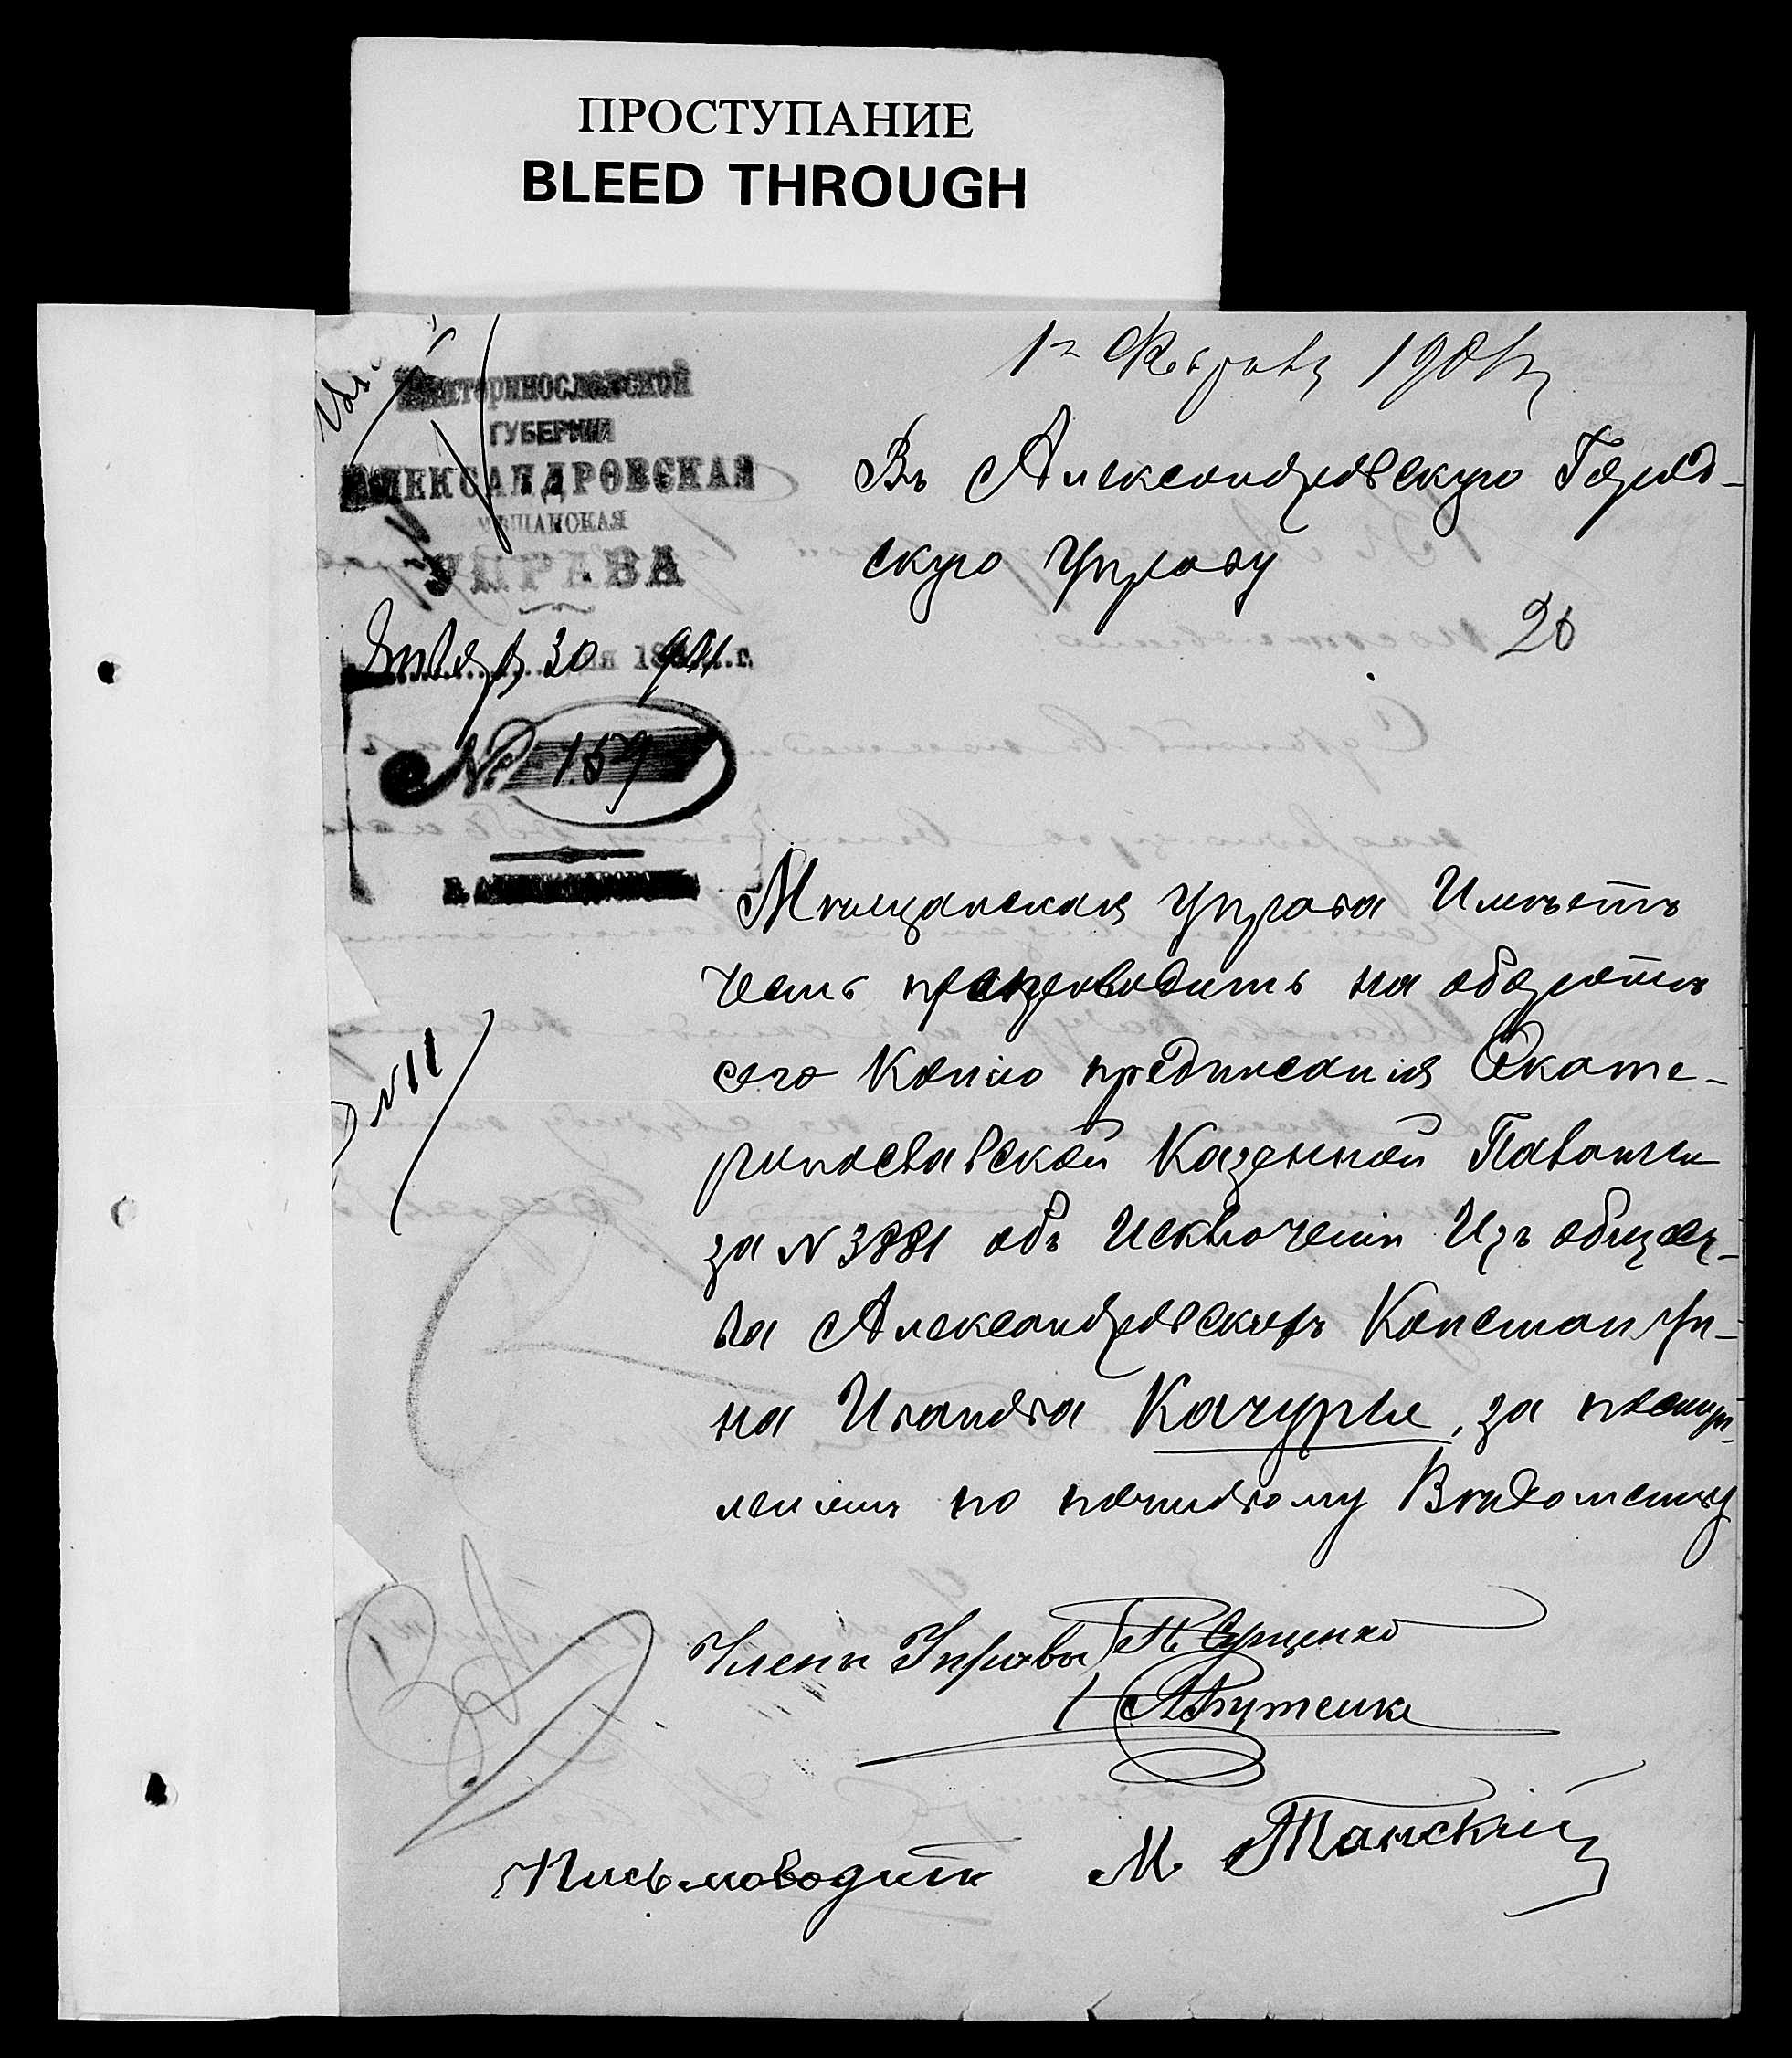 ПРОСТУПАНИЕ
BLEED THROUGH
1го Февраля 1901 г
ЕКАТЕРИНОСЛАВСКОЙ
ГУБЕРНІИ
АЛЕКСАНДРОВСКАЯ
МѢЩАНСКАЯ
УПРАВА
Января 30 дня 1901 г.
№ 159
Г. АЛЕКСАНДРОВСКЪ
Въ Александровскую Город-
скую Управу
26
Мѣщанская управа Имѣетъ
честь препроводить на оборотѣ
сего Копію предписанія Екате-
ринославской Казенной Палаты
за N 3881 объ Исключеніи Изъ общест-
ва Александровскаго Константи-
на Иванова Качуры, за поступ-
леніемъ по почтовому Вѣдомству
N 11
Члены Управы
Письмоводитель М Танскій